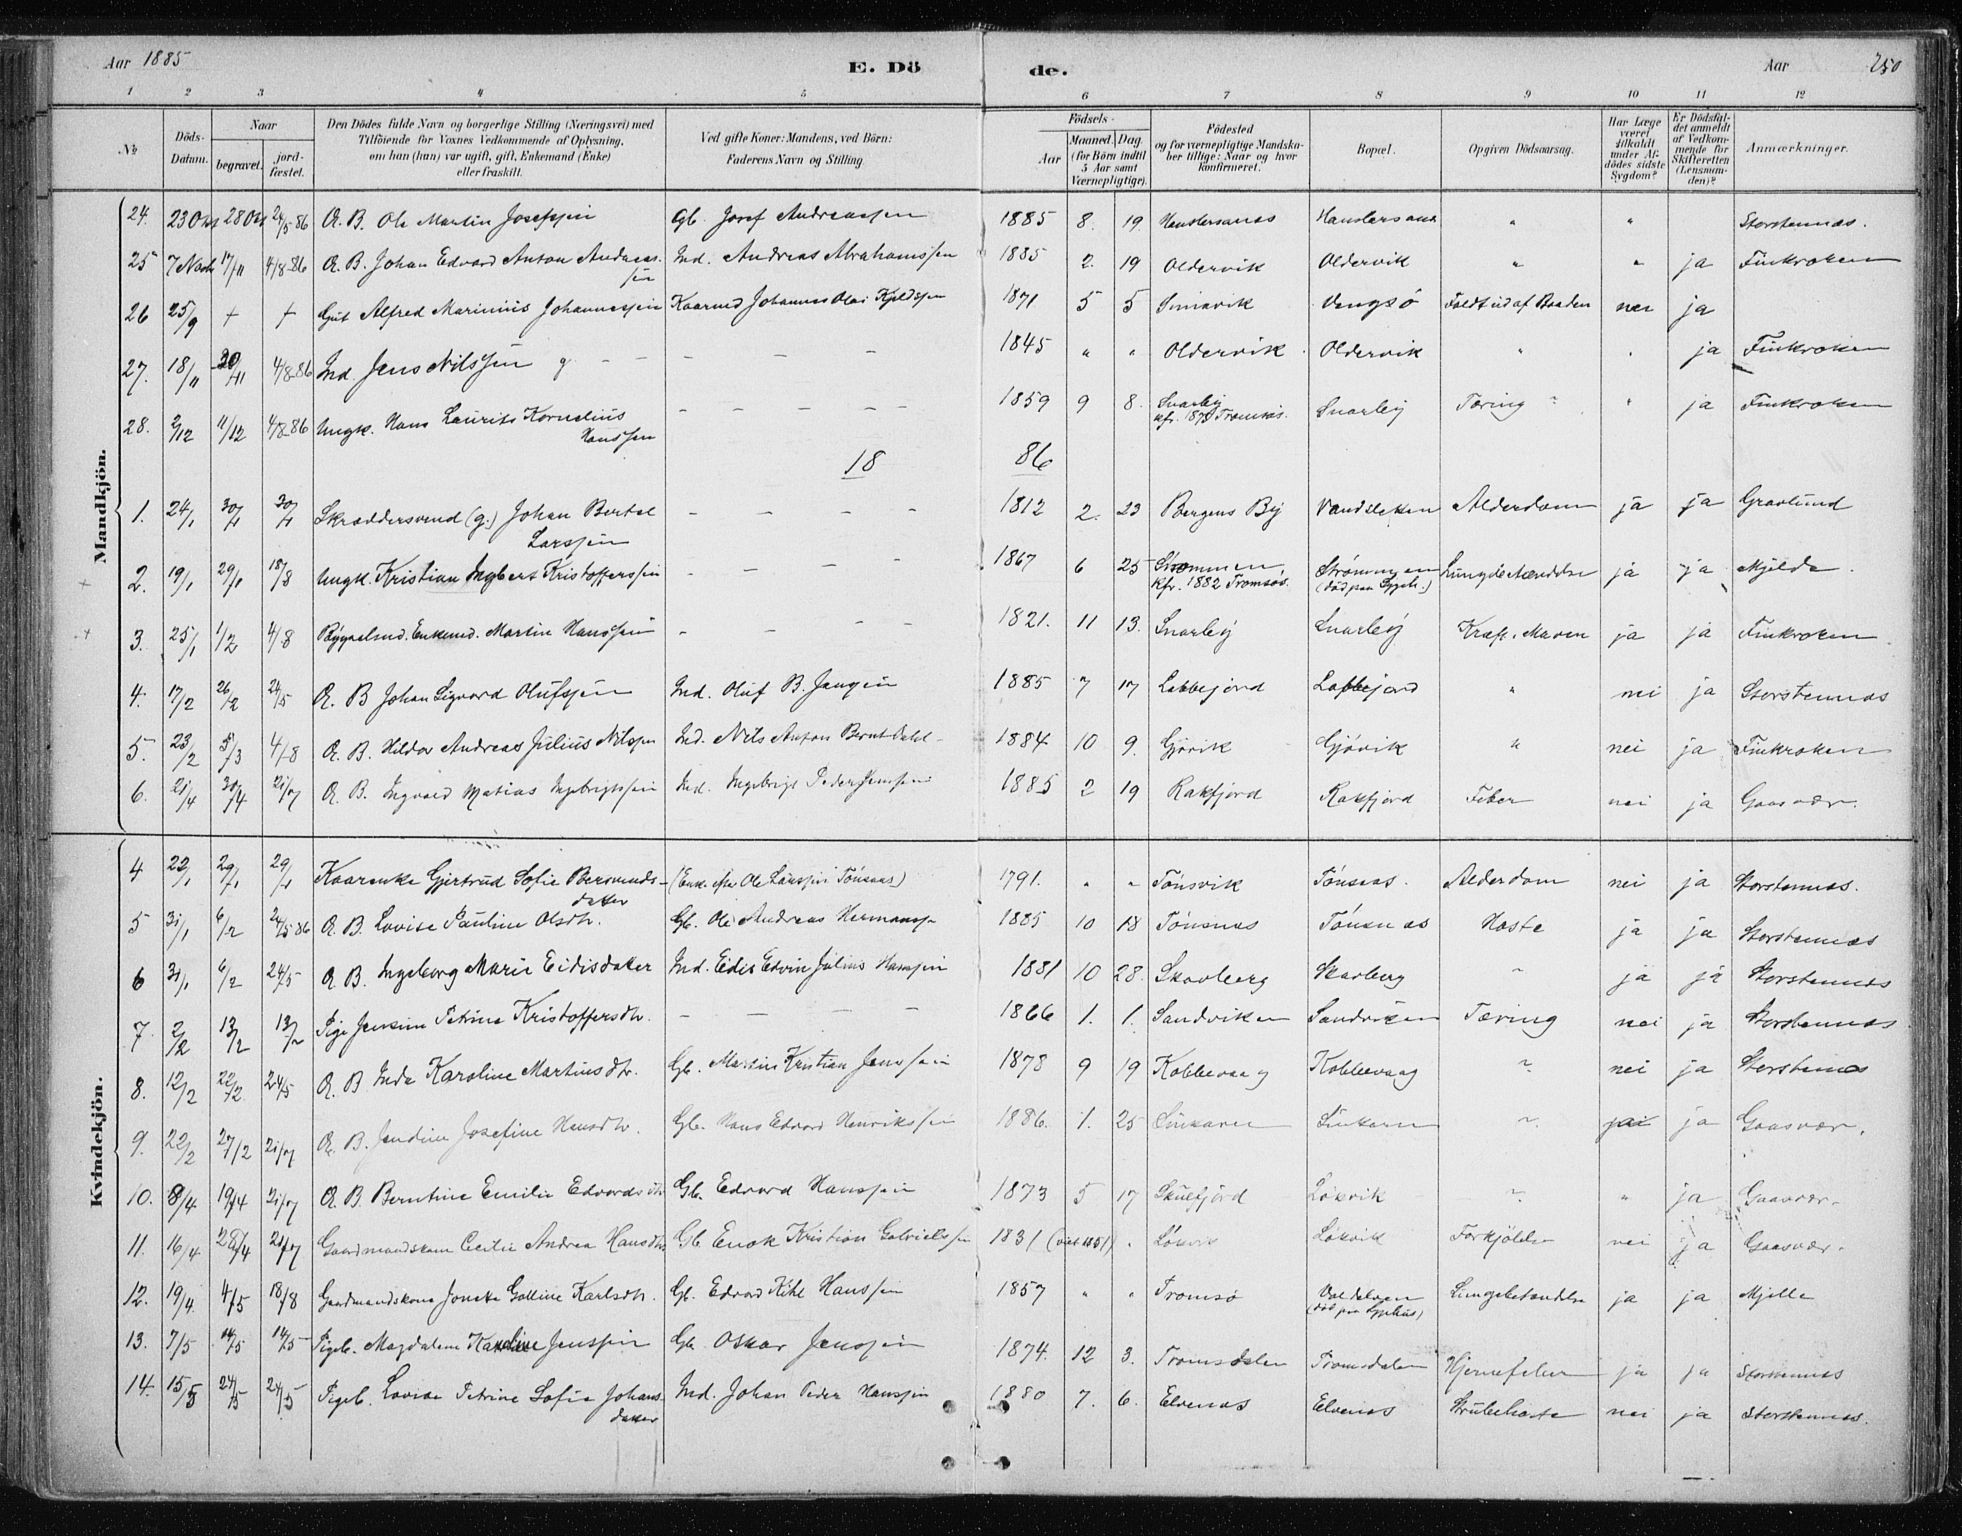 Aar 1885 E. Döde. Aar 250
1 2 3 4 5 6 7 8 9 10 11 12
№ Döds-Datum. Naar begravet. jordfæstet. Den Dödes fulde Navn og borgerlige Stilling (Næringsvei) med Tilföiende for Voxnes Vedkommende af Oplysning, om han (hun) var ugift, gift, Enkemand (Enke) eller fraskilt. Ved gifte Koner: Mandens, ved Börn: Faderens Navn og Stilling. Födsels- Aar Maaned. Dag. (for Börn indtil 5 Aar samt Værnepligtige). Födested og for værnepligtige Mandskaber tillige: Naar og hvor konfirmeret. Bopæl. Opgiven Dödsaarsag. Har Læge været tilkaldt under Afdödes sidste Sygdom? Er Dödsfaldet anmeldt af Vedkommende for Skifteretten (Lensmanden)? Anmærkninger.
Mandkjön.
24. 23 Okt 28 Okt 24/5-86 Æ. B. Ole Martin Josefssen Gb. Josef Andreassen 1885 8. 19 " " Storstennæs.
25 7 Novb 17/11 4/8-86 Æ. B. Johan Edvard Anton Andreas-sen Ind. Andreas Abrahamssen 1885 2. 19 Oldervik Oldervik " " ja Finkroken
26 25/9 + + Gut Alfred Marinius Johannessen Johannes Olai Kjeldsen 1871 5 5 Vengsö Faldt ud af Baaden nei ja
27. 18/11 30/11 4/8-86 Ind. Jens Nilssen g - - - - - 1845 " " Oldervik. Oldervik " . ja Finkroken
28. 2/12 11/12 4/8-86 Ungk. Hans Laurits Kornelius Hanssen - - - - - 1859 9 8. Snarby kfr. 1875 Tromsös. Snarby Tæring " ja Finkroken
18 86
1. 24/1 30/1 30/1 Skræddersvend (g.) Johan Bertel Larssen - - - - 1812 2. 23 Bergens By Alderdom ja ja Gravlund
2. 19/1 29/1 18/8 Ungk. Kristian Ingbert Kristofferssen - - - - 1867 6 25 Strömmen kfr. 1882 Tromsös. Strömmen (död paa Sygeh.) Lungebetændelse ja ja Mjelde.
3. 25/1 1/2 4/8 Enkemd. Martin Hanssen - - - - 1821. 11 13. Snarby Snarby Kræft i Maven ja ja Finkroken
4. 17/2 26/2 24/5 Æ. B Johan Sigvard Olufssen Ind. Oluf B. Jensen 1885 7 17 Labbefjord Labbefjord " nei ja Storstennæs
5. 23/2 5/3 4/8 Æ. B. Hildor Andreas Julius Nilssen Ind. Nils Anton Bernt Dahl 1884 10 9. Gjövik Gjövik " nei ja Finkroken
6. 21/4 30/4 21/7 Æ. B. Ingvald Matias Ingebrigtssen Ind. Ingebrigt Peder Jenssen 1885 2 19 Rakfjord Rakfjord Feber nei ja Gaasvær.
Kvindekjön.
4 22/1 29/1 29/1 Kaarenke Gjertrud Sofie Bersvendsdatter (Enke efter Ole Larssen Tönsnæs) 1791. " " Tönsvik Tönsnæs. Alderdom nei ja Storstennæs.
5 31/1 6/2 24/5 86 Æ. B. Lovise Pauline Olsdtr. Gb. Ole Andreas Hermanssen 1885 10 18 Tönsnæs Tönsnæs Hoste ja ja Storstennæs
6 31/1 6/2 24/5 Æ. B. Ingeborg Marie Eidisdatter Ind. Eidis Edvin Julius Hanssen 1881 10 28. Skavberg Skavberg " ja ja Storstennæs
7. 2/2 13/2 13/2 Pige Jensine Petrine Kristoffersdtr. - - - - 1866 1. 1. Sandviken Sandviken Tæring nei ja Storstennæs
8. 12/2 22/2 24/5 Æ. B Inda Karoline Martinsdtr. Gb. Martin Kristian Jenssen 1878 9 19 Kobbevaag Kobbevaag " nei ja Storstennæs
9. 22/2 27/2 21/7 Æ. B. Jendine Josefine Hansdtr. Gb. Hans Edvard Henrikssen 1886. 1. 25 " ja Gaasvær.
10. 8/4 19/4 21/7 Æ. B. Berntine Emilie Edvardsdtr. Gb. Edvard Hanssen 1873 5 17 Skulsfjord Lökvik " " ja Gaasvær.
11. 16/4 28/4 21/7 Gaardmandskone Cecilie Andrea Hansdtr. Gb Enok Kristian Gabrielssen 1831 . Lökvik Lökvik Forkjölelse nei ja Gaasvær.
12. 19/4 4/5 18/8 Gaardmandskone Jonetta Golline Karlsdtr. Gb. Edvard Kihl Hanssen 1857 " " Tromsö (död paa Sygehus) Lungebetændelse ja ja Mjelle
13. 7/5 14/5 14/5 Pigeb. Magdalene Karoline Jenssen Gb. Oskar Jenssen 1874. 12 3. Tromsdalen Tromsdalen Hjernefeber ja ja Storstennæs
14. 15/5 24/5 24/5 Pigeb. Lovise Petrine Sofie Johansdatter Ind. Johan Peder Hanssen 1880 7. 6. Elvenæs Elvenæs Strubehoste nei ja Storstennæs.